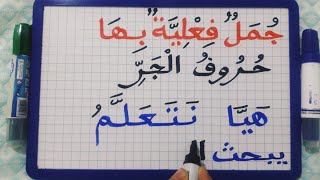 جُمَلٌ فِعْلِيَّةٌ بِهَا
حُرُوفُ الْجَرِّ
هَيَّا نَتَعَلَّمُ
يبحث ال